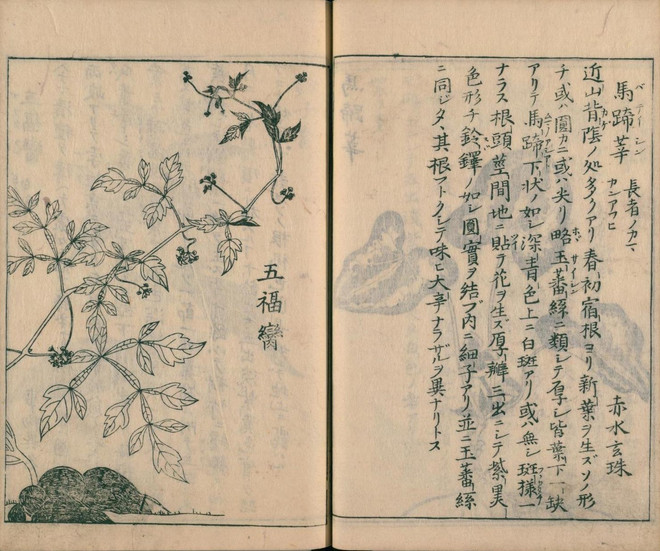 馬蹄莘 長者ノカマ カンアフヒ
赤水玄珠
近山背陰ノ処多クアリ春初宿根ヨリ新葉ヲ生ズソノ形
チ或ハ圓カニ或ハ尖リ略玉蕃絲ニ類シテ厚シ皆葉下一缺
アリテ馬蹄下状ノ如シ深青色上ニ白斑アリ或ハ無シ斑様一
ナラス根頭莖間地ニ貼ラ花ヲ生ズ厚瓣三出ニシテ紫黒
色形チ鈴鐸ノ如シ圓實ヲ結ブ内ニ細子アリ並ニ玉蕃絲
ニ同ジタヽ其根フトクシテ味ヒ大辛ナラザルヲ異ナリトス
五福